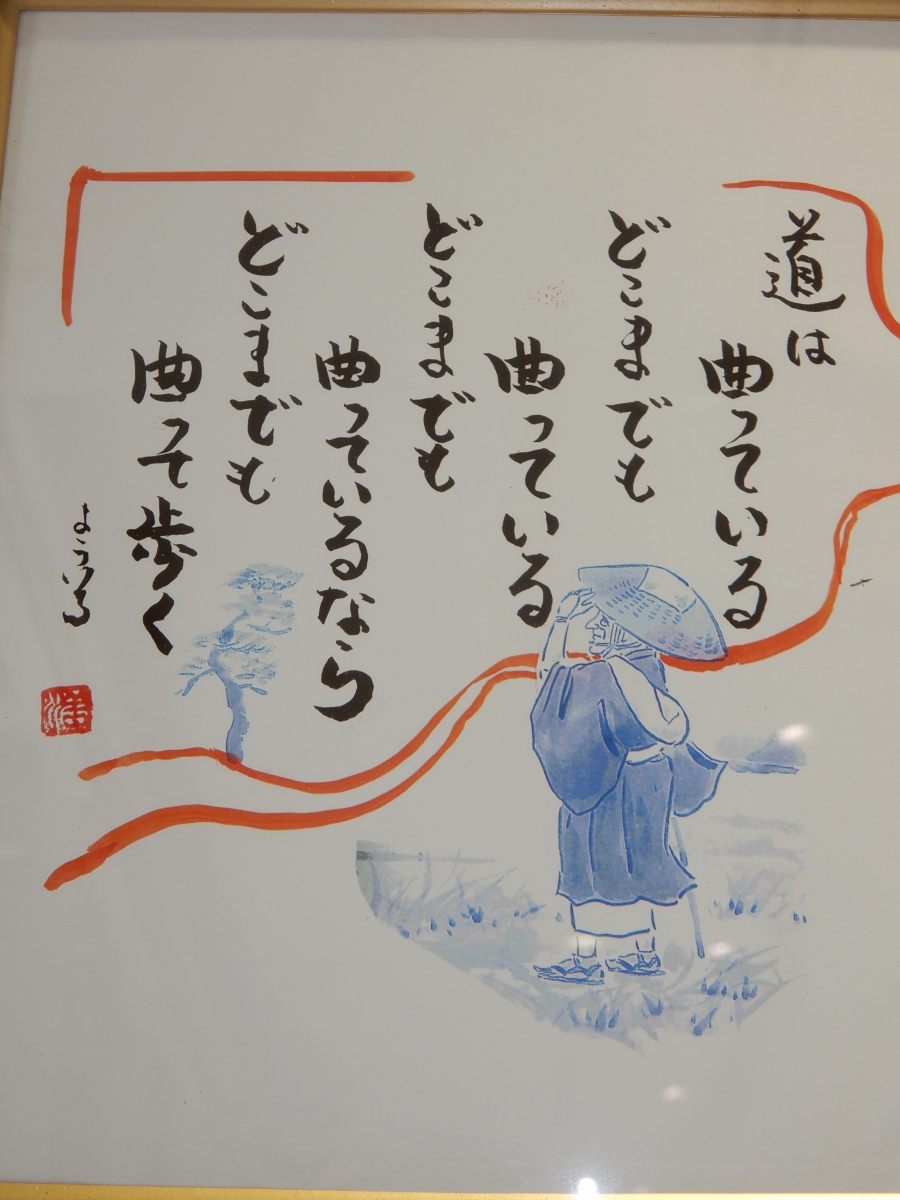 道は
曲っている
どこまでも
曲っている
どこまでも
曲っているなら
どこまでも
曲って歩く